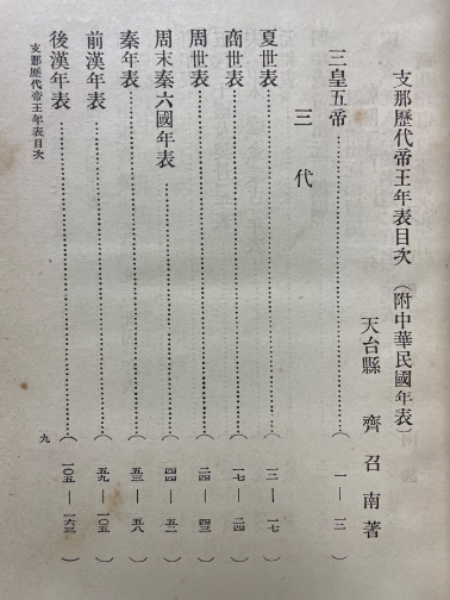 支那歷代帝王年表目次(附中華民國年表)
天台縣 齊召南著
三皇五帝……(一—一二)
三代
夏世表……(一二—一七)
商世表……(一七—二四)
周世表……(二四—四三)
周末秦六國年表……(四四—五二)
秦年表……(五三—五八)
前漢年表……(五九—一〇五)
後漢年表……(一〇五—一六三)
支那歷代帝王年表目次
九